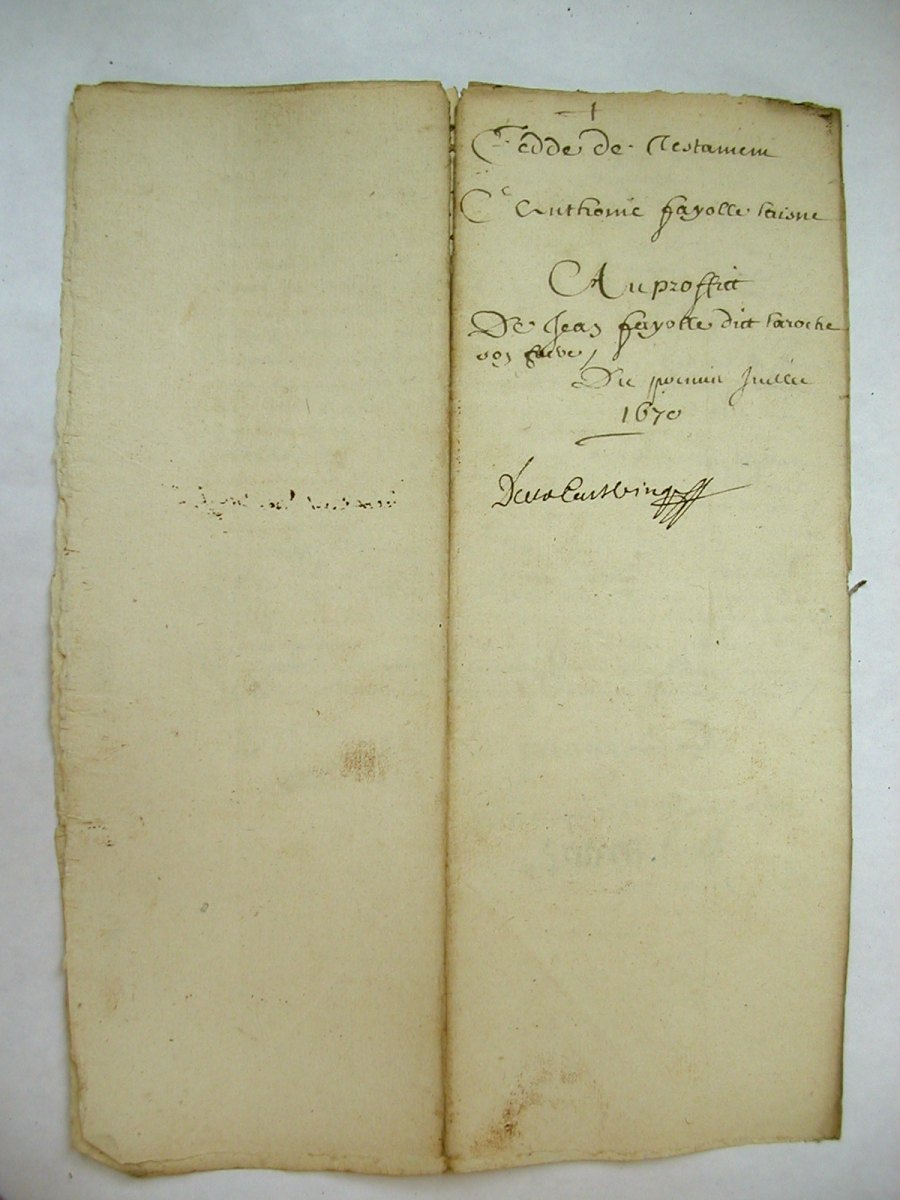 Cedde de Testament
Anthonie fayolle laisne
Au proffict
De Jean fayolle dict laroche
son
Du premier Juillet
1670